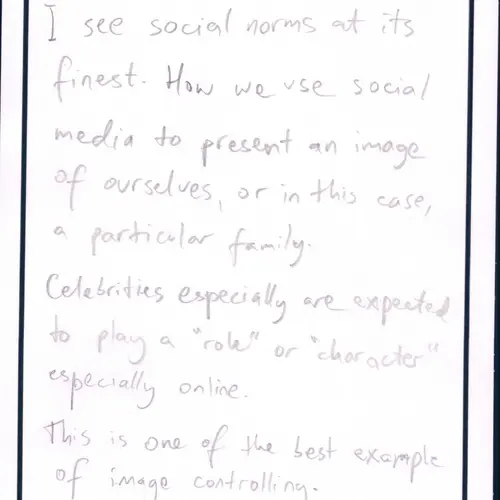 I see social norms at its
finest. How we use social
media to present an image
of ourselves, or in this case,
a particular family.
Celebrities especially are expected
to play a "role" or "character"
especially online.
This is one of the best example
of image controlling.